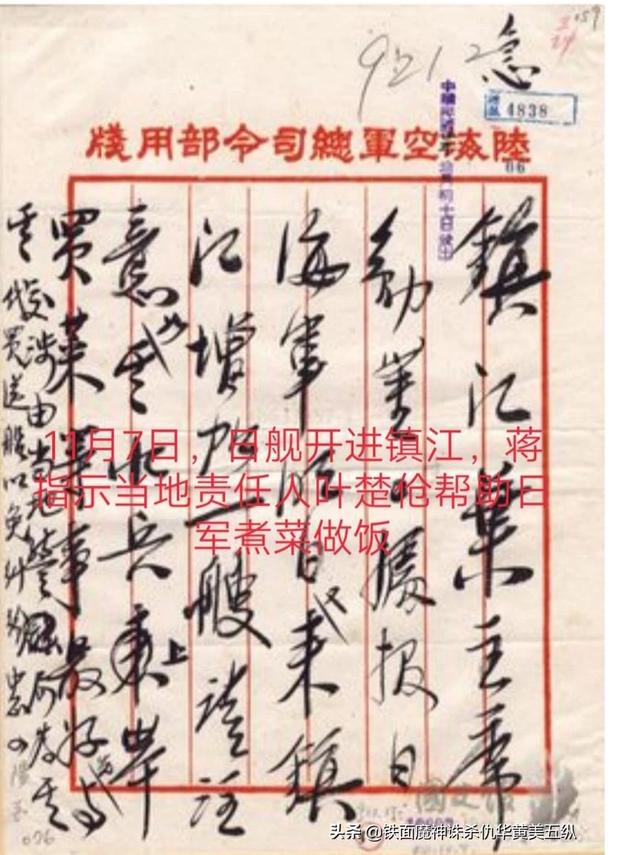 急
4838
陸海空軍總司令部用牋
06
鎮江葉主席
勛鑒據報日
海軍明日又來鎮
江增加一艘請注
意如其水兵上岸
買菜等事最好
交涉由當地
代買送艦以免糾紛
076
11月7日，日舰开进镇江，蒋
指示当地责任人叶楚伧帮助日
军煮菜做饭
头条 @铁面魔神诛杀仇华黄美五纵